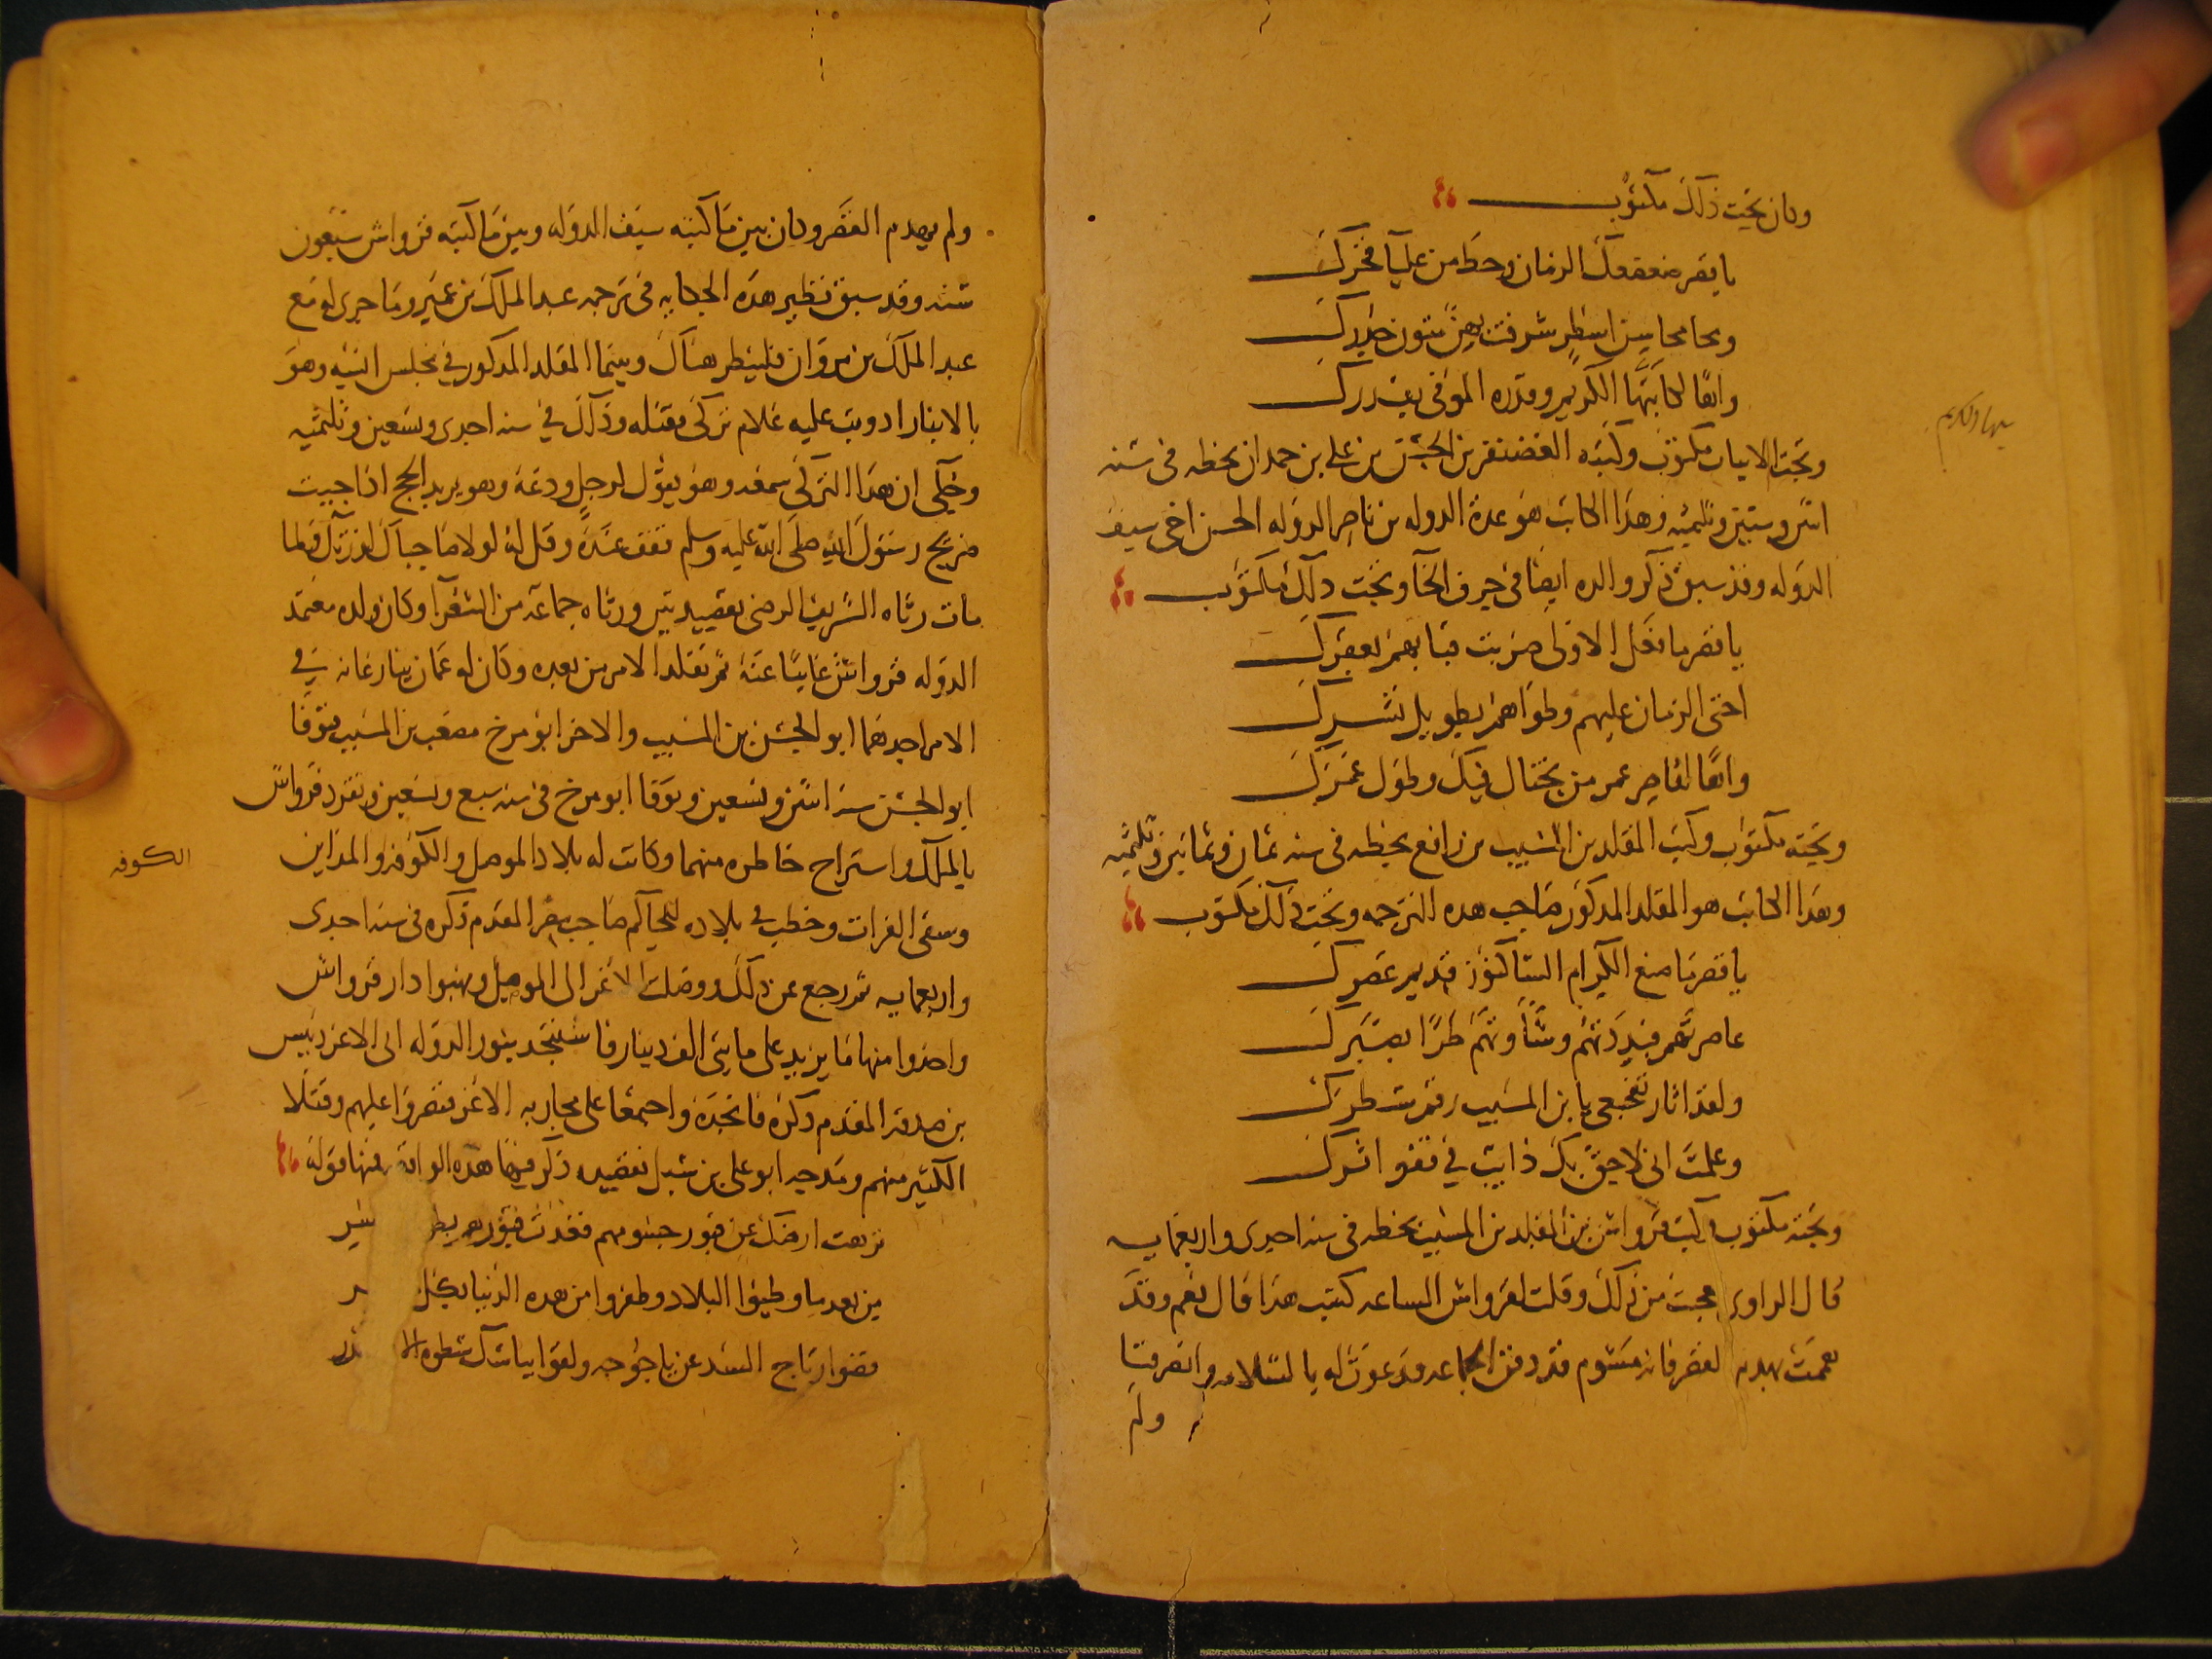 وكان تحت ذلك مكتوب
يا قصر ضعضعك الزمان وحط من عليا فخرك
ومحا محاسن اسطر شرفت بهن متون جدرك
واها لكاتبها الكريم وقدره الموفى بقدرك
وتحت الابيات مكتوب وكتبه الغضنفر بن الحسن بن علي بن حمدان بخطه في سنه
اثنين وستين وثلثميه وهذا الكاتب هو عدة الدوله بن ناصر الدوله الحسن اخي سيف
الدوله وقد سبق ذكر والده ايضا في حرف الحآ وتحت ذلك مكتوب
يا قصر ما فعل الاولى ضربت قبابهم بعقرك
اخنى الزمان عليهم وطواهم بطويل نشرك
واها لقاصر عمر من يختال فيك وطول عمرك
وتحته مكتوب وكتب المقلد بن المسيب بن رافع بخطه في سنه ثمان وثمانين وثلثميه
وهذا الكاتب هو المقلد المذكور صاحب هذه الترجمه وتحت ذلك مكتوب
يا قصر ما صنع الكرام الساكنون قديم عصرك
عاصرتهم فبددتهم وشاوتهم طرا بصبرك
ولقد اثار تفجعي يا بن المسيب رقم سطرك
وعلمت اني لاحق بك دايب في قفو اثرك
وتحته مكتوب وكتب قرواش بن المقلد بن المسيب بخطه في سنه احدى واربعمايه
قال الراوي عجبت من ذلك وقلت لقرواش الساعه كتبت هذا قال نعم وقد
هممت بهدم القصر فانه مشوم قد دفن الجماعه فدعوت له بالسلامه وانصرفنا
ولم
بها والكريم
ولم يهدم القصر وكان بين ما كتبه سيف الدوله وبين ما كتبه قرواش سبعون
سنه وقد سبق نظير هذه الحكايه في ترجمه عبد الملك بن عمير وما جرى له مع
عبد الملك بن مروان فلينظر هناك وبينما المقلد المذكور في مجلس انسه وهو
بالانبار اذ وثب عليه غلام تركي فقتله وذلك في سنه احدى وتسعين وثلثميه
وحكي ان هذا التركي سمعه وهو يقول لرجل ودعه وهو يريد الحج اذا جيت
ضريح رسول الله صلى الله عليه وسلم فقف عنده وقل له لولا صاحباك لزرتك ولما
مات رثاه الشريف الرضي بقصيدتين ورثاه جماعه من الشعرآ وكان ولده معتمد
الدوله قرواش غايبا عنه ثم تقلد الامر من بعده وكان له عمان ينازعانه في
الامر احدهما ابو الحسن بن المسيب والاخر ابو مرخ مصعب بن المسيب فتوفا
ابو الحسن سنه اثنين وتسعين وتوفا ابو مرخ في سنه سبع وتسعين وتفرد قرواش
بالملك واستراح خاطره منهما وكانت له بلاد الموصل والكوفه والمداين
الكوفه
وسقي الفرات وخطب في بلاده للحاكم صاحب مصر المقدم ذكره في سنه احدى
واربعمايه ثم رجع عن ذلك ووصلت الاغز الى الموصل ونهبوا دار قرواش
واخذوا منها ما يزيد على مايتى الف دينار فاستنجد بنور الدوله ابى الاغر دبيس
بن صدقه المقدم ذكره فانجده واجتمعا على محاربه الاغز فنصروا عليهم وقتلا
الكثير منهم ومدحه ابو علي بن شبل بقصيده ذكر فيها هذه الواقعه فمنها قوله
نزهت ارضك عن قبور جسومهم فغدت قبورهم بطون
من بعد ما وطيوا البلاد وظفروا من هذه الدنيا بكل
فضوا رتاج السد عن ياجوجه ولقوا بباسك سطوة